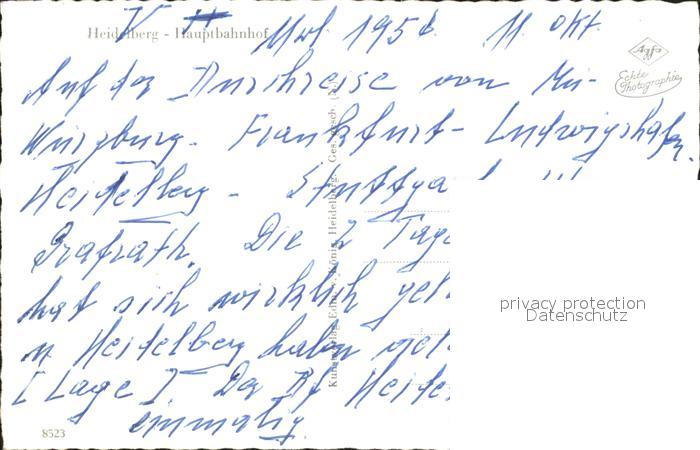 Heidelberg - Hauptbahnhof
11. Okt.
Agfa
Echte Photographie
Auf der Durchreise von Mü-
Würzburg - Frankfurt - Ludwigshafen.
Heidelberg - Stuttga
Grafrath. Die 2 Tage
hat sich wirklich gel
u Heidelberg haben
[Lage]. Der Bf Heide
einmalig.
8523
Heidelberg
privacy protection
Datenschutz